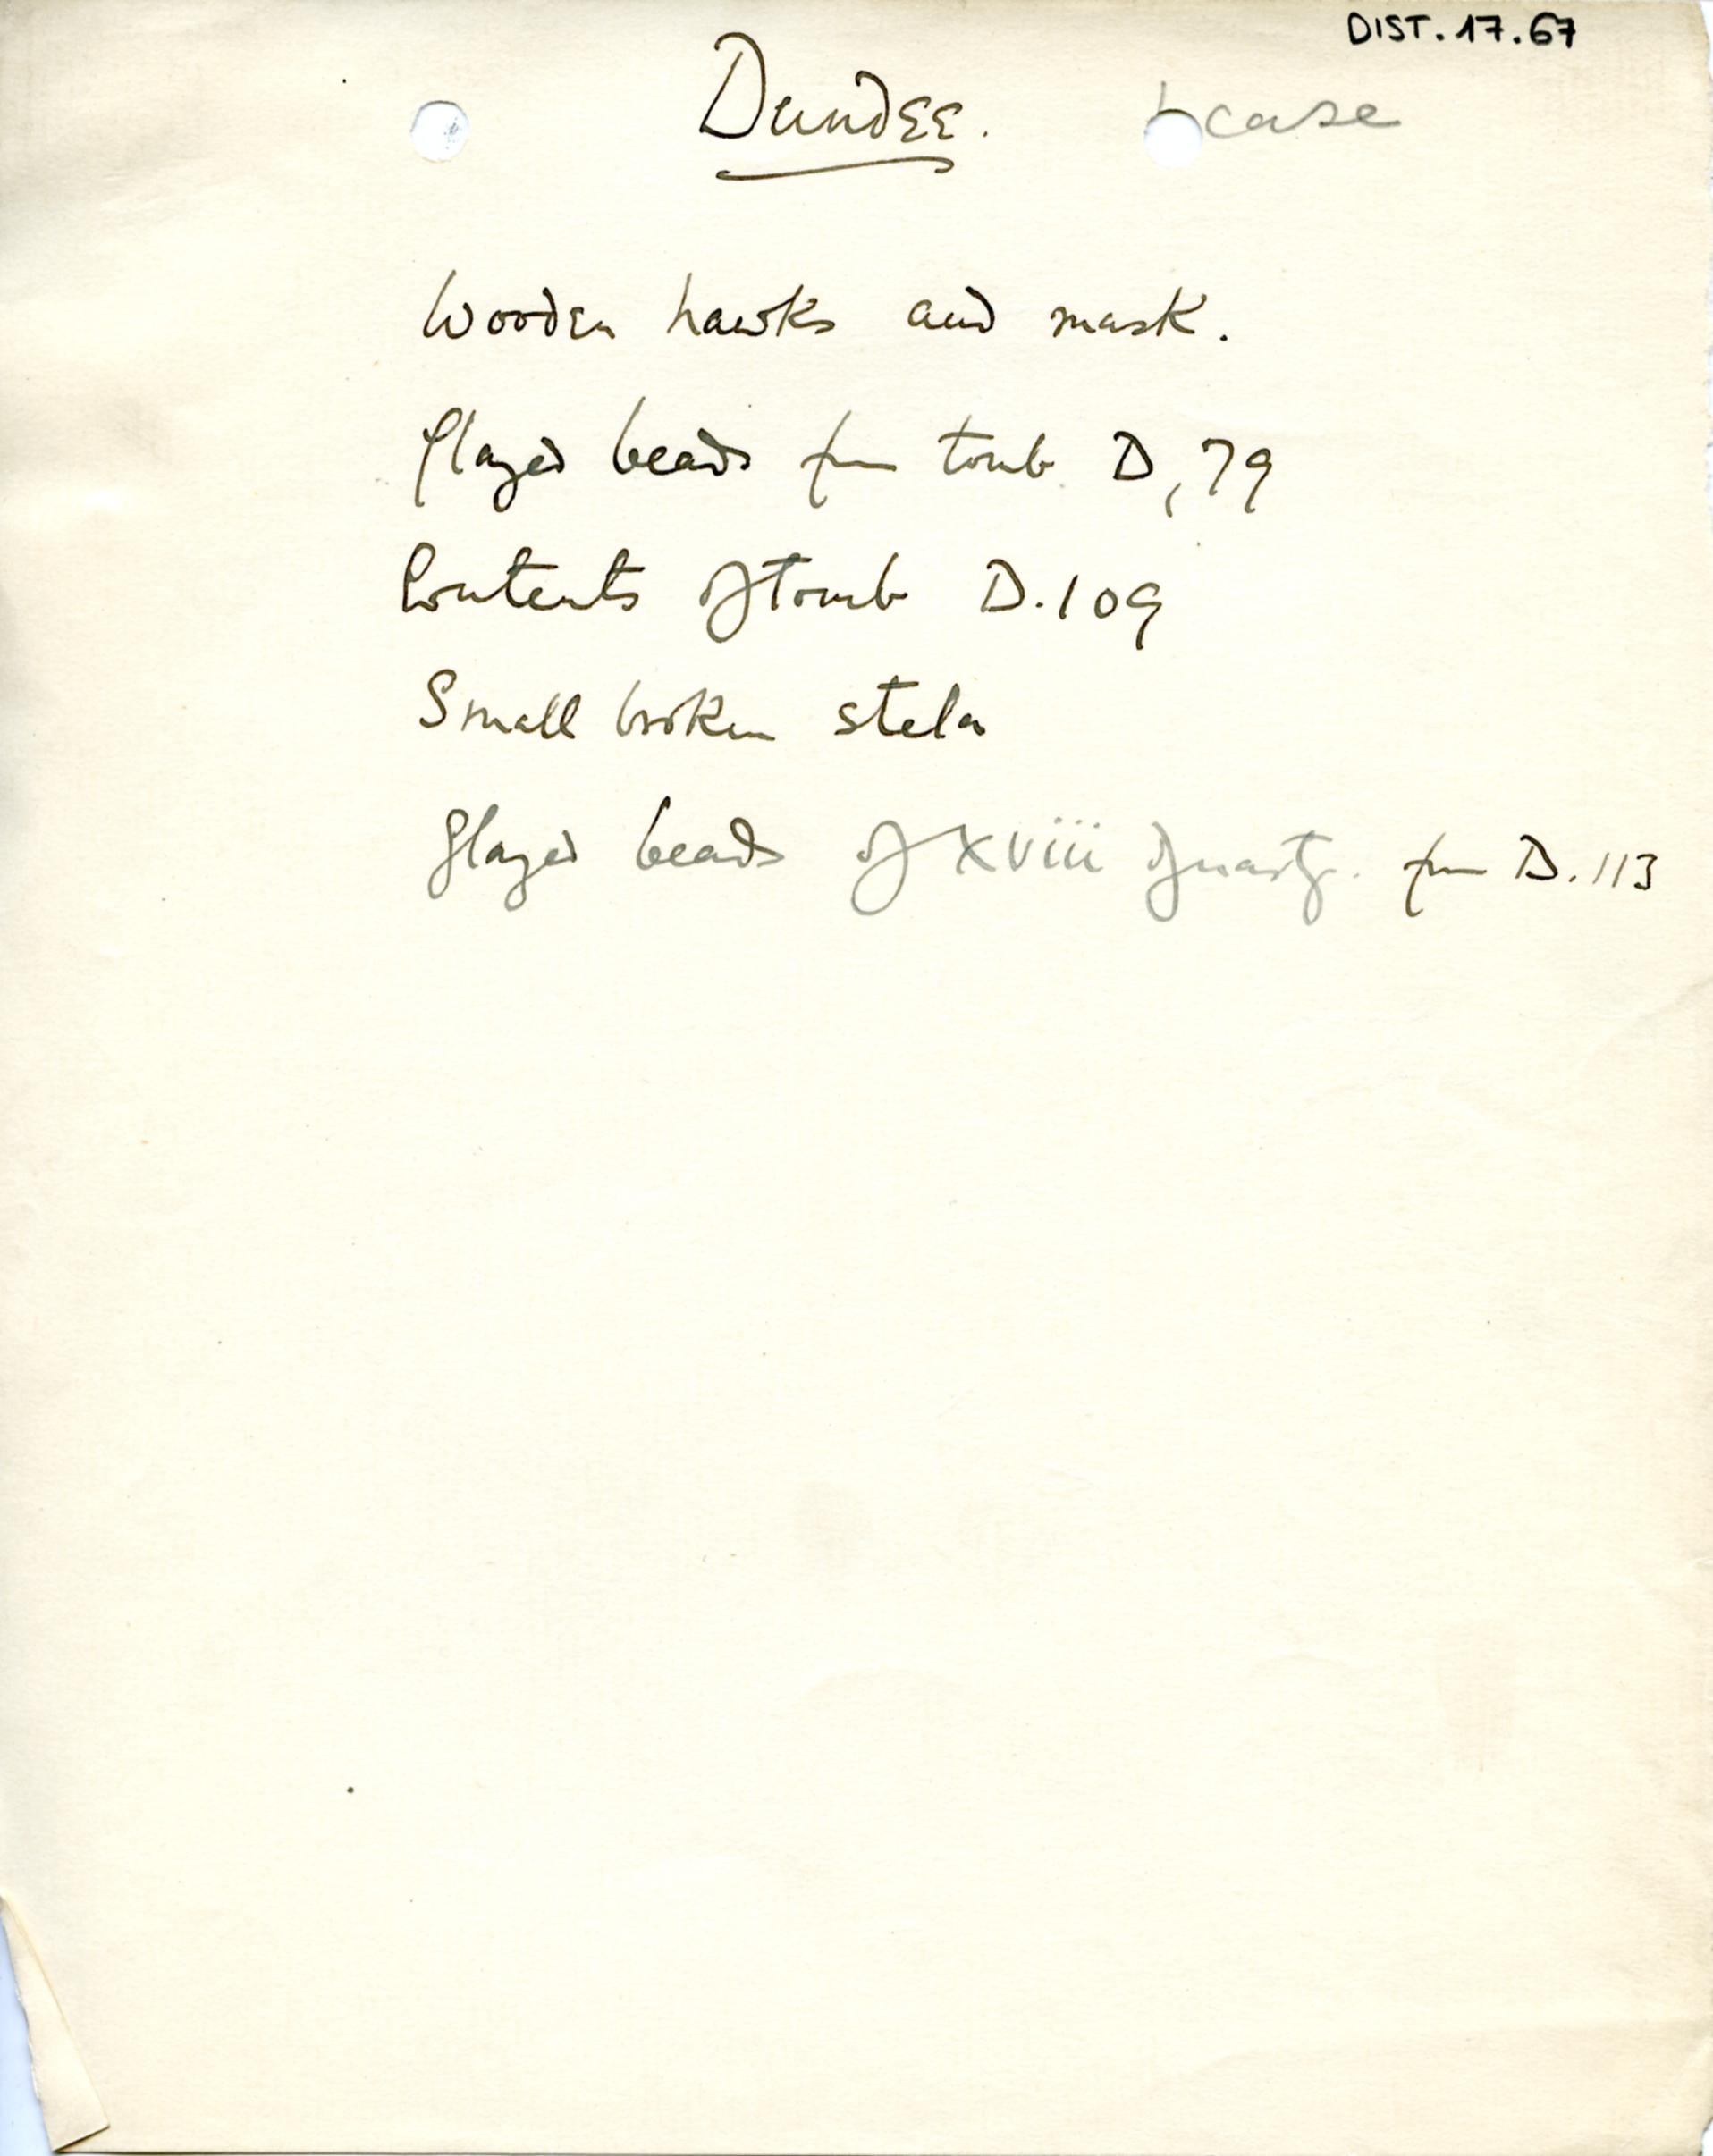 DIST. 17.67
Dundee. case
Wooden hawks and mask.
Glazed beads from tomb D, 79
Contents of tomb D. 109
Small broken stela
Glazed beads of XViii Dynasty. from D. 113